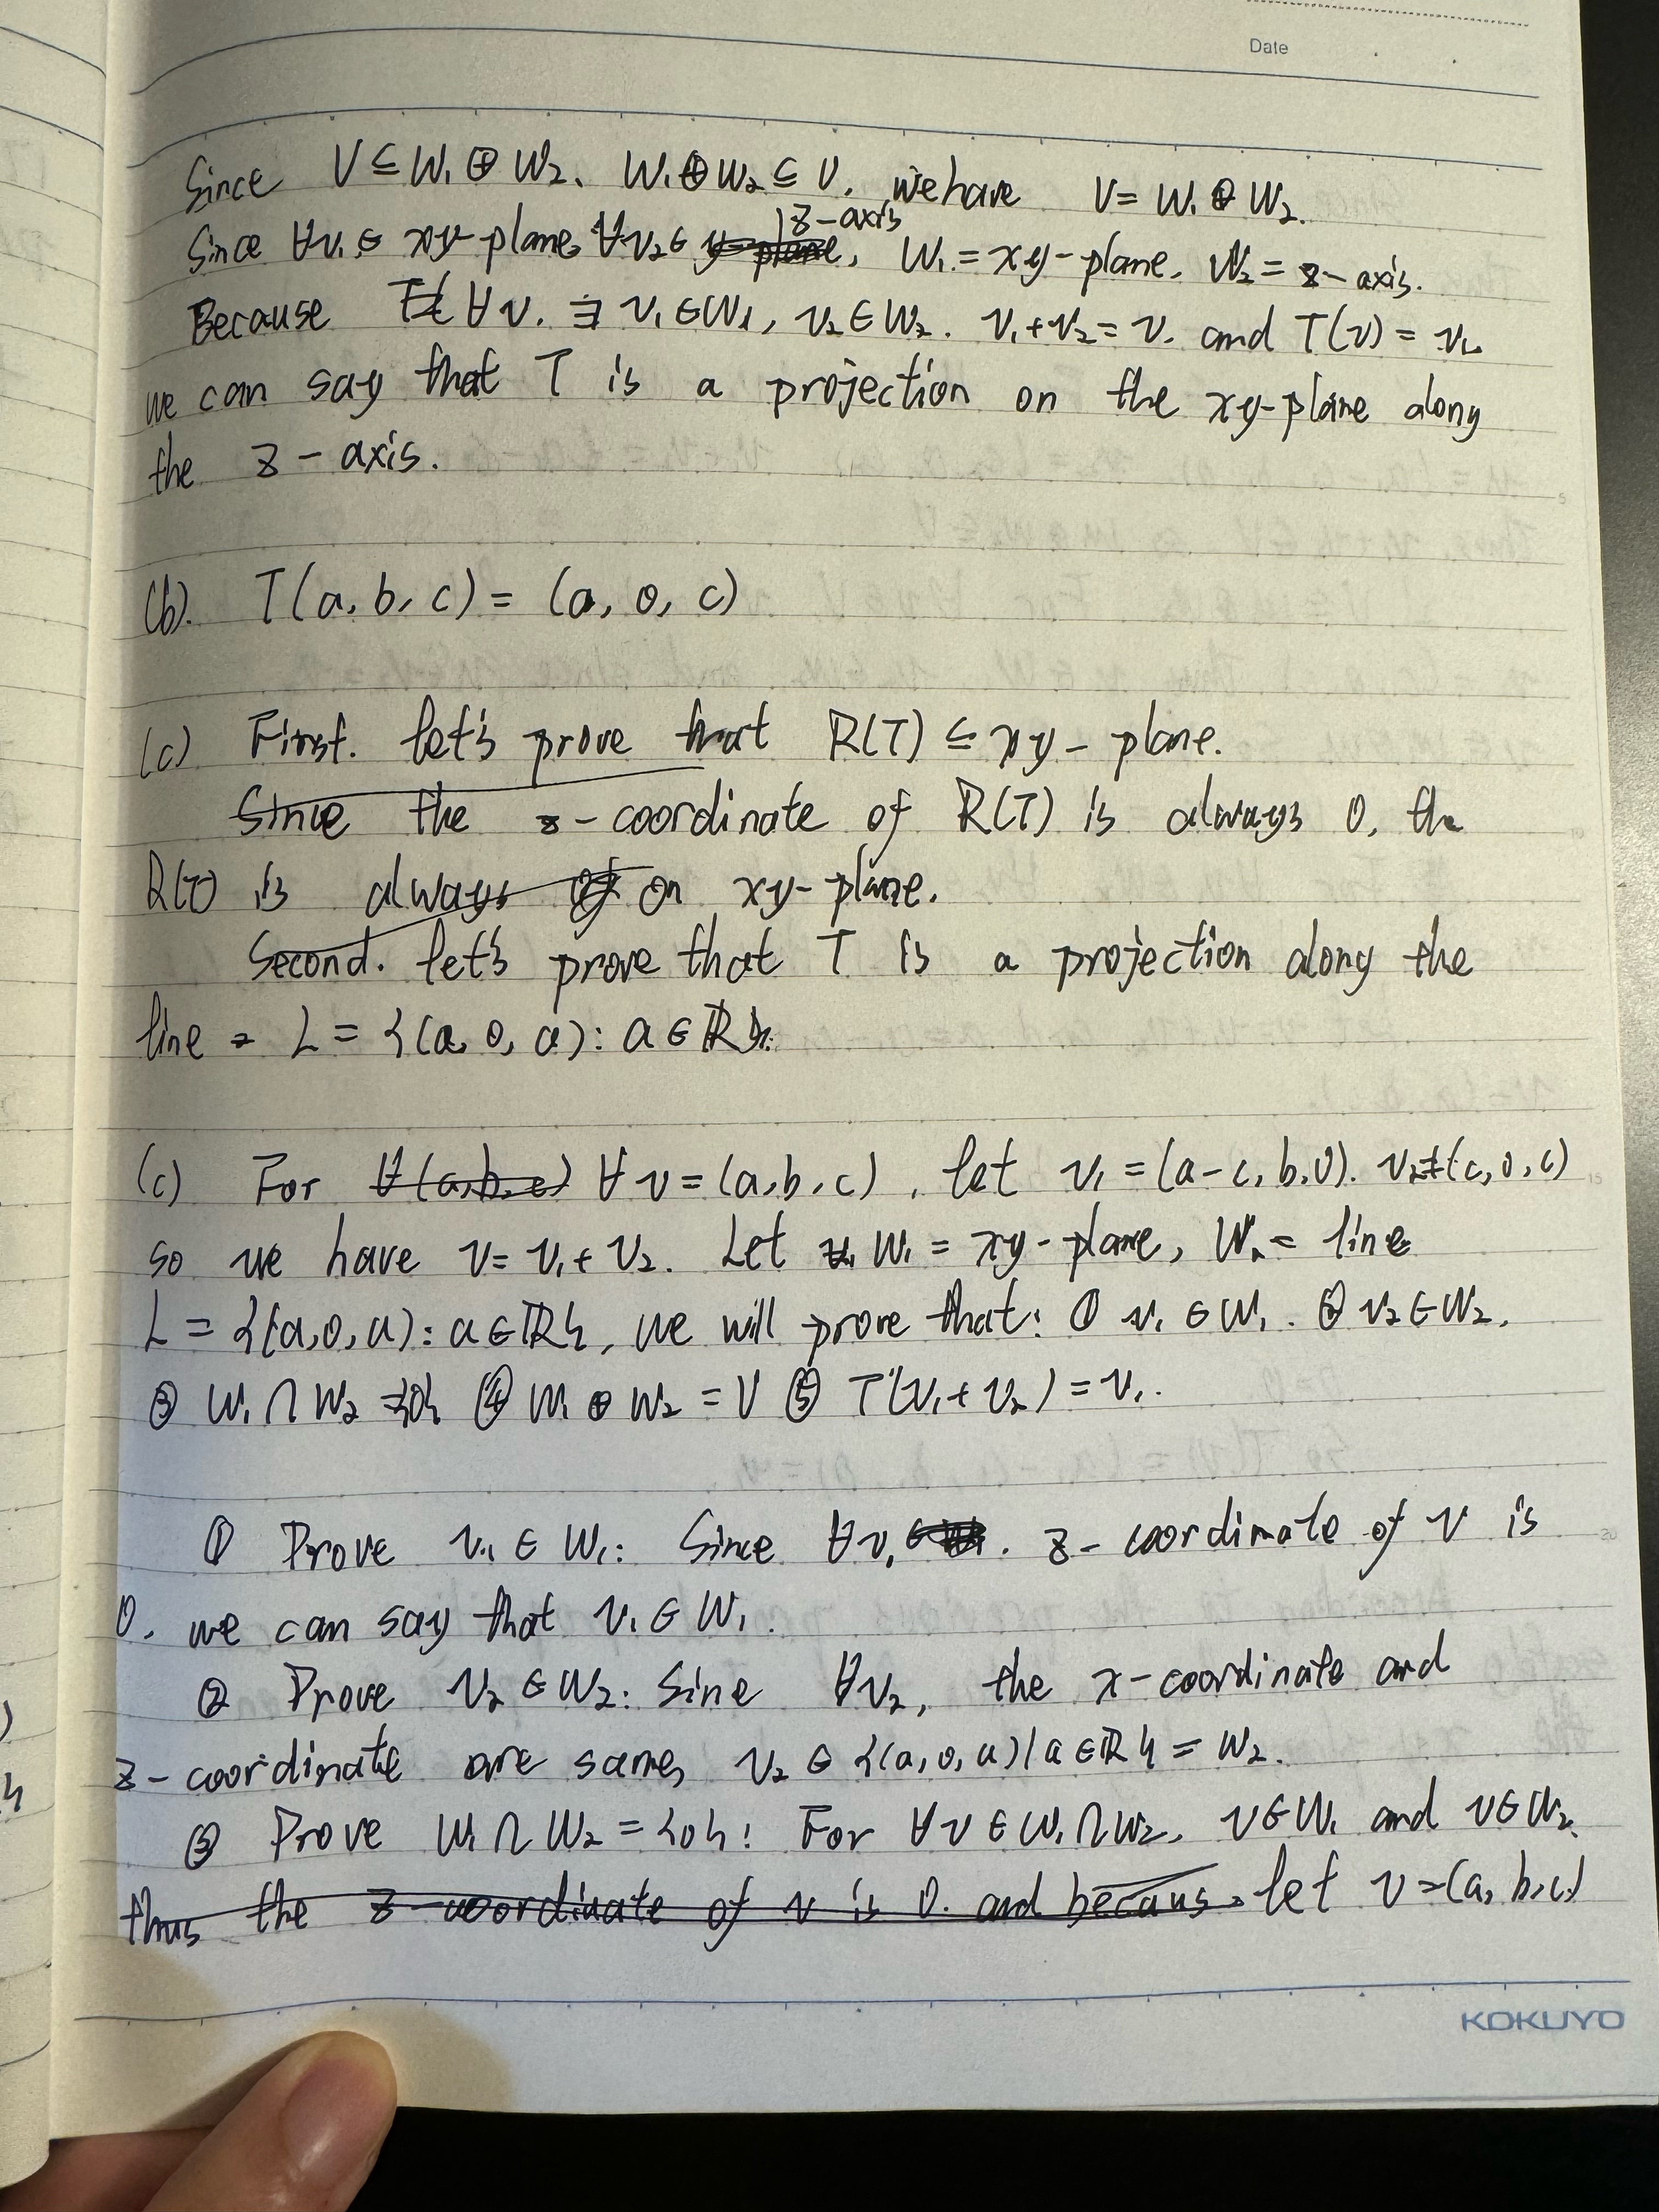 Date
Since V ⊆ W₁ ⊕ W₂, W₁ ⊕ W₂ ⊆ V, we have V = W₁ ⊕ W₂.
Since ∀v₁ ∈ xy-plane, ∀v₂ ∈ z-axis, W₁ = xy-plane, W₂ = z-axis.
Because ∀v, ∃ v₁ ∈ W₁, v₂ ∈ W₂. v₁ + v₂ = v. and T(v) =
we can say that T is a projection on the xy-plane along
the z-axis.
(b). T(a, b, c) = (a, 0, c)
(c) First. let's prove that R(T) ⊆ xy-plane.
Since the z-coordinate of R(T) is always 0, the
R(T) is always on xy-plane.
Second. let's prove that T is a projection along the
line = L = {(a, 0, a): a ∈ ℝ}.
(c) For ∀v = (a, b, c), let v₁ = (a-c, b, 0). v₂ = (c, 0, c)
so we have v = v₁ + v₂. Let W₁ = xy-plane, W₂ = line
L = {(a, 0, a): a ∈ ℝ}, we will prove that: ① v₁ ∈ W₁. ② v₂ ∈ W₂.
③ W₁ ∩ W₂ = {0} ④ W₁ ⊕ W₂ = V ⑤ T(v₁ + v₂) = v₁.
① Prove v₁ ∈ W₁: Since ∀v₁. z-coordinate of v is
0. we can say that v₁ ∈ W₁.
② Prove v₂ ∈ W₂: Sine ∀v₂, the x-coordinate and
z-coordinate are same, v₂ ∈ {(a, 0, a) | a ∈ ℝ} = W₂.
③ Prove W₁ ∩ W₂ = {0}: For ∀v ∈ W₁ ∩ W₂, v ∈ W₁ and v ∈ W₂.
thus the z-coordinate of v is 0. and becaus. let v = (a, b, c)
KOKUYO